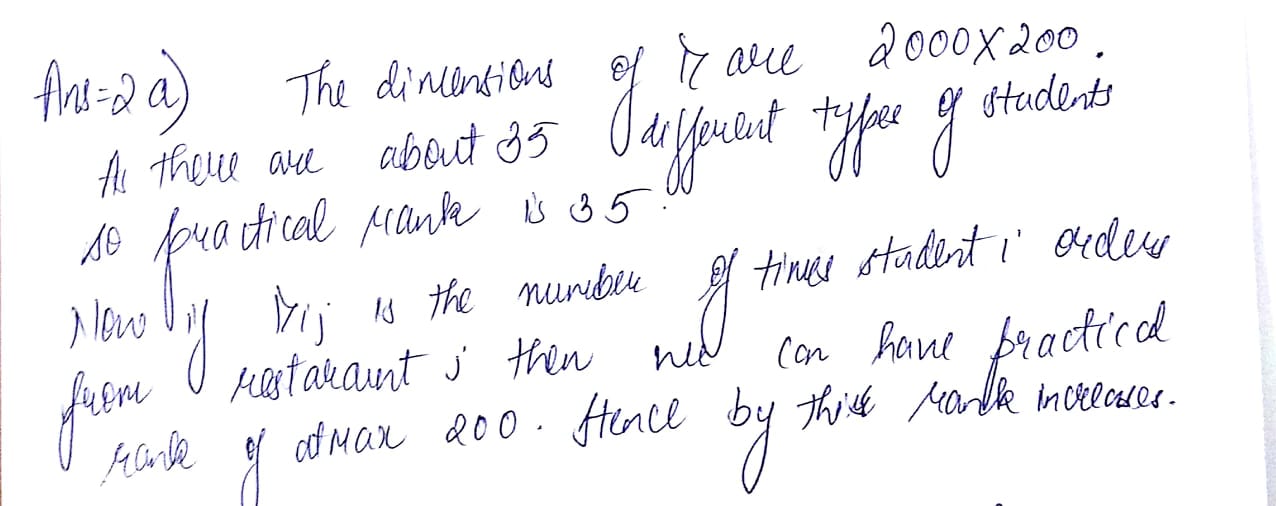 Ans=2 a) The dimensions of Y are 2000X200.
As there are about 35 different types of students
so practical rank is 35.
Now if Yij is the number of times student i orders
from restaraunt j then we can have practical
rank of atmax 200. Hence by this rank increases.